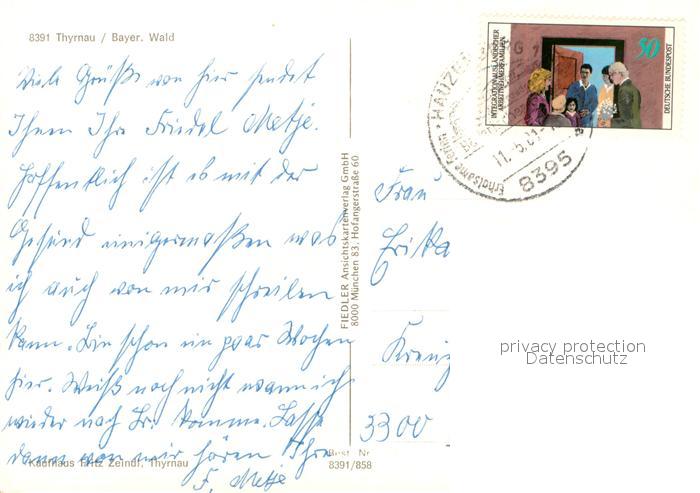 8391 Thyrnau / Bayer. Wald
Viele Grüße von hier sendet
Ihnen Ihr Friedel Metje.
Hoffentlich ist es mit der
Gesund einigermaßen was
ich auch von mir schreiben
kann. Bin schon ein paar Wochen
hier. Weiß noch nicht wann ich
wieder nach Br. komme. Lasse
dann von mir hören Ihre
F. Metje
Kaufhaus Fritz Zeindl, Thyrnau
FIEDLER Ansichtskartenverlag GmbH
8000 München 83, Hofangerstraße 60
Best. Nr
8391/858
INTEGRATION AUSLÄNDISCHER
ARBEITNEHMERFAMILIEN
50
DEUTSCHE BUNDESPOST
HAUZENBERG
Erholsame Ferien
11.5.81
8395
Frau
Erika
Kreuz
3300
privacy protection
Datenschutz